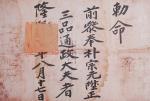 勅命
前參奉朴宗陞正
三品通政大夫者
隆八月十七日